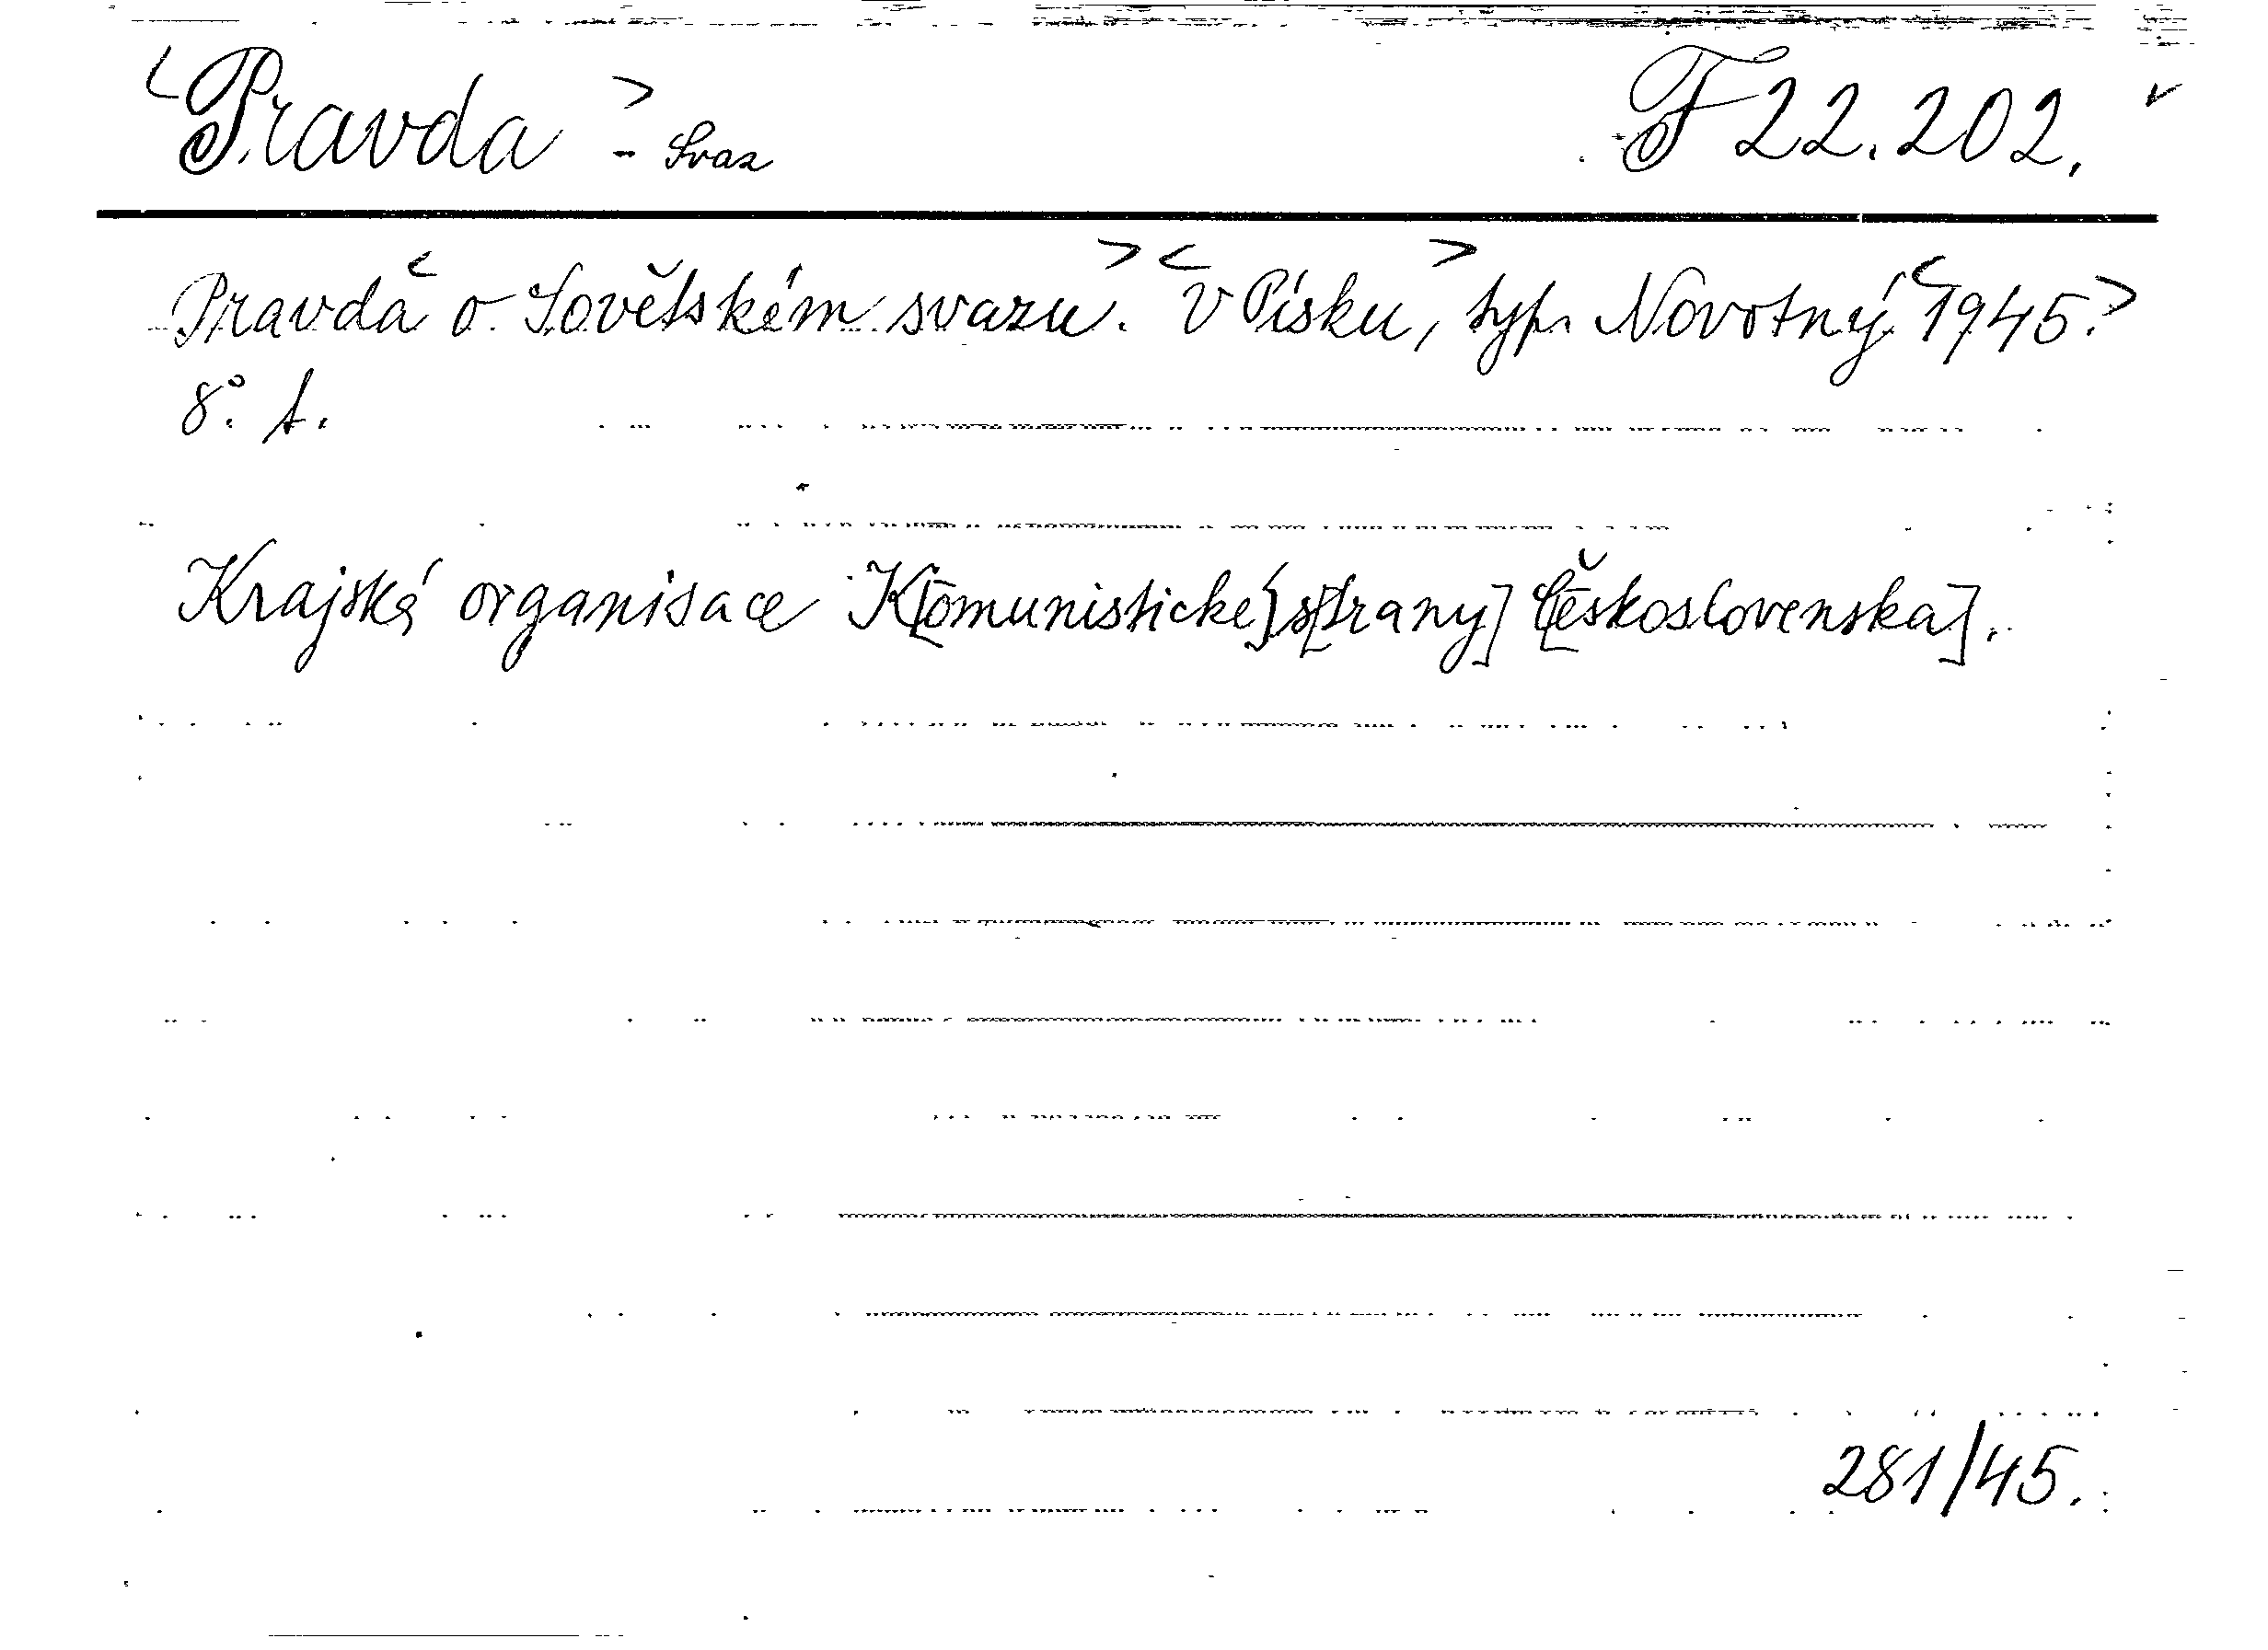 <Pravda> - Svaz F 22.202. ✓
Pravda < o Sovětském svazu. > < V Písku, > typ. Novotný < 1945. >
8°. t.
Krajská organisace K[omunistické] s[trany] Č[eskoslovenska].
281/45.